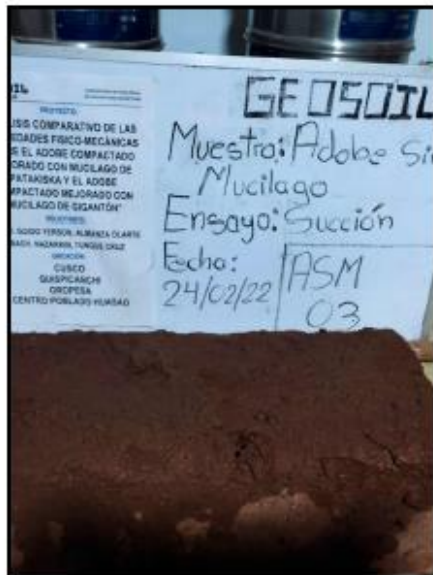 PROYECTO:
ISIS COMPARATIVO DE LAS
EDADES FISICO-MECÁNICAS
EL ADOBE COMPACTADO
ORADO CON MUCILAGO DE
PATAKISKA Y EL ADOBE
MPACTADO MEJORADO CON
MUCILAGO DE GIGANTÓN"
YERSON, ALMANZA OLARTE
CRUZ
CUSCO
QUISPICANCHI
OROPESA
CENTRO POBLADO HUASAO
GEOSOIL
Muestra: Adobe Si
Mucilago
Ensayo: Succión
Fecha:
24/02/22
ASM
03